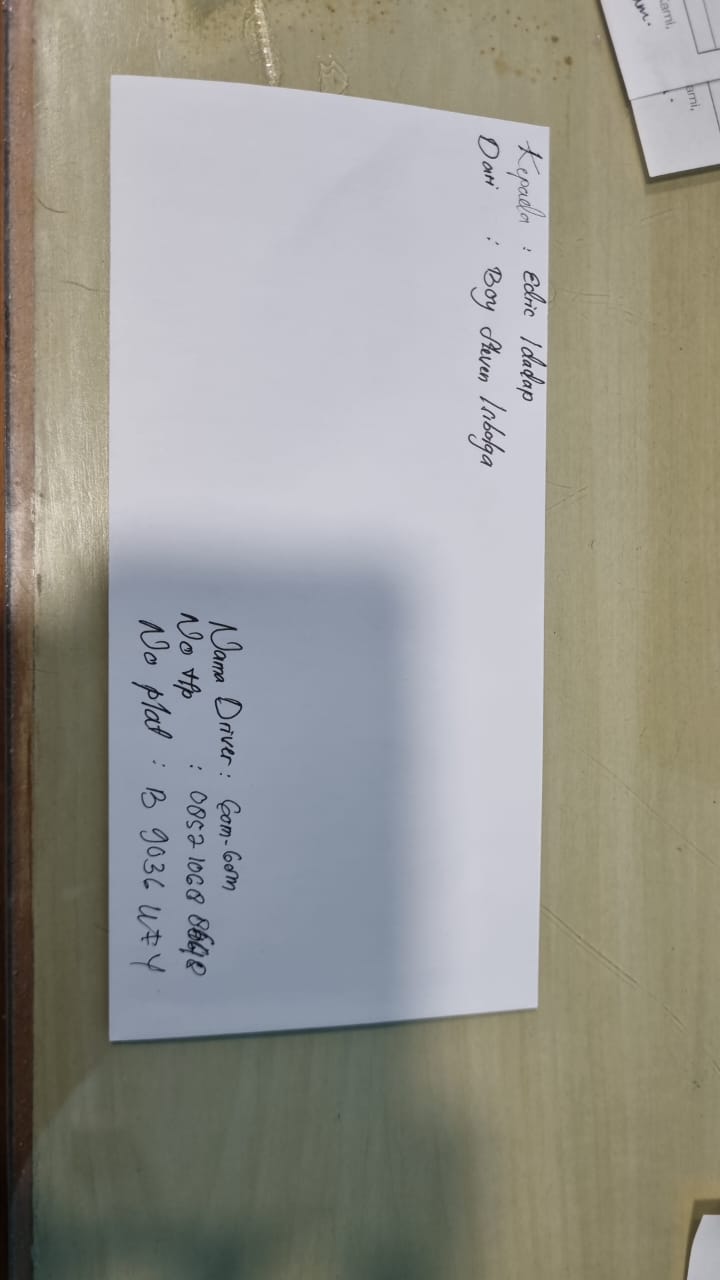 Kepada : Edric Idadap
Dari : Boy Steven Inbolga
Nama Driver : Gom-Gom
No tlp : 0852 1068
No plat : B 9036 UZY
kami,
am.
ami,